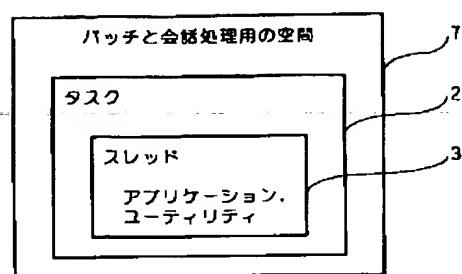 バッチと会話処理用の空間
7
タスク
2
スレッド
3
アプリケーション,
ユーティリティ